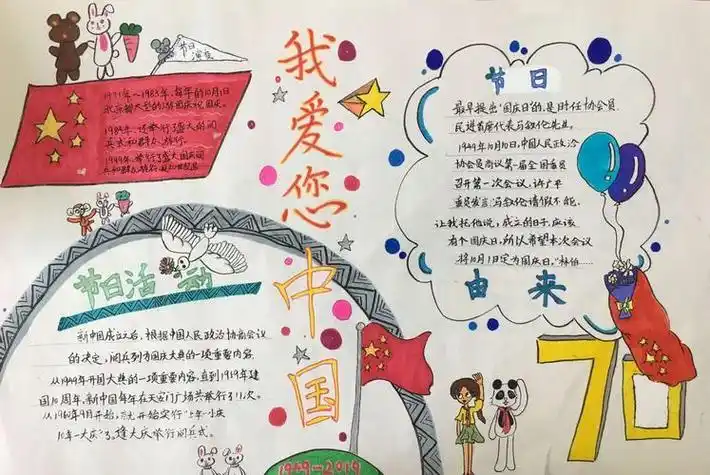 节日
演变
1971年~1983年,每年的10月1日
北京都大型的游园庆祝国庆。
1984年,还举行了盛大的阅
兵式和群众游行。
1999年,举行了盛大国庆阅
我爱您中国
节日
最早提出'国庆日'的,是时任协会员
民进首席代表马叙伦先生。
1949年10月10日,中国人民政治
协会员商议第一届全国委员
召开第一次会议,许广平
委员发言:冯叙伦请假不能,
让我托他说,成立的日子,应该
有个国庆日,所以希望本次会议
将10月1日定为国庆日。"林伯……
由来
节日活动
新中国成立之后,根据中国人民政治协商会议
的决定,阅兵列为国庆大典的一项重要内容,
从1949年开国大典的一项重要内容,直到1959年建
国10周年,新中国每年在天安门广场共举行了11次。
从1960年9月开始,就开始实行"五年一小庆
10年一大庆"了,逢大庆举行阅兵式。
70
1949-2019